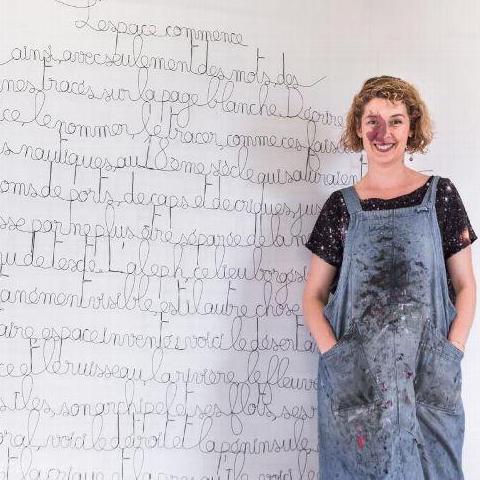 L'espace commence
ainsi, avec seulement des mots, des
nes tracés sur la page blanche. Décrire
ce le nommer, le tracer, comme ces fais
s nautiques, au 18ème siècle qui saturaient
oms de ports, de caps et de criques, jus
sse par ne plus être séparée de la m
u de les de. L'aleph, ce lieu borgés
anément visible, est il autre chose
aire espace inventé: voici le désert a
ce et le ruisseau, la rivière, le fleuve
s îles, son archipel et ses îlots, ses r
oral, voici le détroit et la péninsule